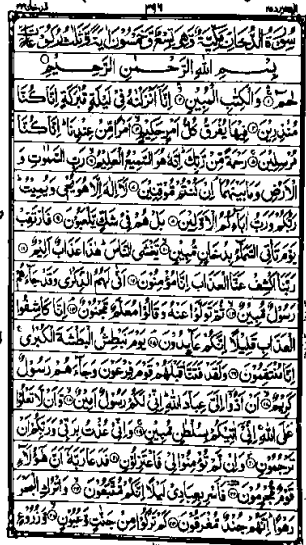 سُوْرَةُ الدُّخَانِ مَكِّيَّةٌ وَّهِيَ تِسْعٌ وَّخَمْسُوْنَ اٰيَةً وَّثَلٰثُ رُكُوْعَاتٍ
بِسْمِ اللّٰهِ الرَّحْمٰنِ الرَّحِيْمِ
حٰمٓ وَالْكِتٰبِ الْمُبِيْنِ اِنَّا اَنْزَلْنٰهُ فِيْ لَيْلَةٍ مُّبٰرَكَةٍ اِنَّا كُنَّا
مُنْذِرِيْنَ فِيْهَا يُفْرَقُ كُلُّ اَمْرٍ حَكِيْمٍ اَمْرًا مِّنْ عِنْدِنَا اِنَّا كُنَّا
مُرْسِلِيْنَ رَحْمَةً مِّنْ رَّبِّكَ اِنَّهٗ هُوَ السَّمِيْعُ الْعَلِيْمُ رَبِّ السَّمٰوٰتِ وَ
الْاَرْضِ وَمَا بَيْنَهُمَا اِنْ كُنْتُمْ مُّوْقِنِيْنَ لَآ اِلٰهَ اِلَّا هُوَ يُحْيٖ وَيُمِيْتُ
رَبُّكُمْ وَرَبُّ اٰبَآئِكُمُ الْاَوَّلِيْنَ بَلْ هُمْ فِيْ شَكٍّ يَّلْعَبُوْنَ فَارْتَقِبْ
يَوْمَ تَاْتِي السَّمَآءُ بِدُخَانٍ مُّبِيْنٍ يَّغْشَى النَّاسَ هٰذَا عَذَابٌ اَلِيْمٌ
رَبَّنَا اكْشِفْ عَنَّا الْعَذَابَ اِنَّا مُؤْمِنُوْنَ اَنّٰى لَهُمُ الذِّكْرٰى وَقَدْ جَآءَهُمْ
رَسُوْلٌ مُّبِيْنٌ ثُمَّ تَوَلَّوْا عَنْهُ وَقَالُوْا مُعَلَّمٌ مَّجْنُوْنٌ اِنَّا كَاشِفُوا
الْعَذَابِ قَلِيْلًا اِنَّكُمْ عَآئِدُوْنَ يَوْمَ نَبْطِشُ الْبَطْشَةَ الْكُبْرٰى
اِنَّا مُنْتَقِمُوْنَ وَلَقَدْ فَتَنَّا قَبْلَهُمْ قَوْمَ فِرْعَوْنَ وَجَآءَهُمْ رَسُوْلٌ
كَرِيْمٌ اَنْ اَدُّوْٓا اِلَيَّ عِبَادَ اللّٰهِ اِنِّيْ لَكُمْ رَسُوْلٌ اَمِيْنٌ وَّاَنْ لَّا تَعْلُوْا
عَلَى اللّٰهِ اِنِّيْٓ اٰتِيْكُمْ بِسُلْطٰنٍ مُّبِيْنٍ وَاِنِّيْ عُذْتُ بِرَبِّيْ وَرَبِّكُمْ اَنْ
تَرْجُمُوْنِ وَاِنْ لَّمْ تُؤْمِنُوْا لِيْ فَاعْتَزِلُوْنِ فَدَعَا رَبَّهٗٓ اَنَّ هٰٓؤُلَآءِ
قَوْمٌ مُّجْرِمُوْنَ فَاَسْرِ بِعِبَادِيْ لَيْلًا اِنَّكُمْ مُّتَّبَعُوْنَ وَاتْرُكِ الْبَحْرَ
رَهْوًا اِنَّهُمْ جُنْدٌ مُّغْرَقُوْنَ كَمْ تَرَكُوْا مِنْ جَنّٰتٍ وَّعُيُوْنٍ وَّزُرُوْعٍ